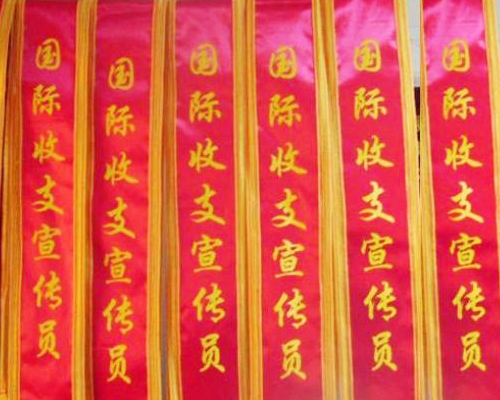 国际收支宣传员
国际收支宣传员
国际收支宣传员
国际收支宣传员
国际收支宣传员
国际收支宣传员